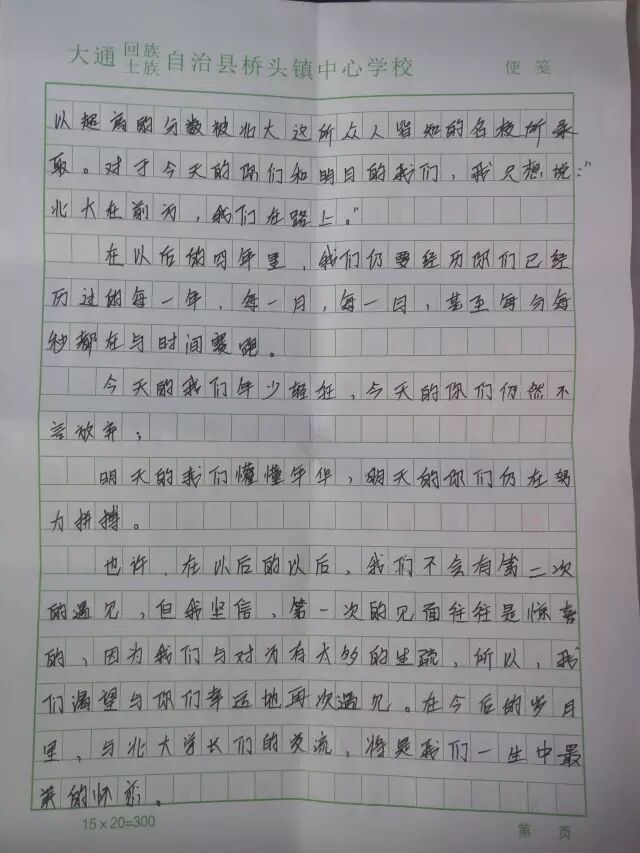 大通回族土族自治县桥头镇中心学校 便笺
以超高的分数被北大这所众人皆知的名校所录
取。对于今天的你们和明日的我们，我只想说：“
北大在前方，我们在路上。”
在以后的四年里，我们仍要经历你们已经
历过的每一年，每一月，每一日，甚至每分每
秒都在与时间赛跑。
今天的我们年少轻狂，今天的你们仍然不
言放弃；
明天的我们懂懂年华，明天的你们仍在努
力拼搏。
也许，在以后的以后，我们不会有第二次
的遇见，但我坚信，第一次的见面往往是惊喜
的，因为我们与对方有太多的生疏，所以，我
们渴望与你们幸运地再次遇见。在今后的岁月
里，与北大学长们的交流，将是我们一生中最
美的怀念。
15×20=300 第 页